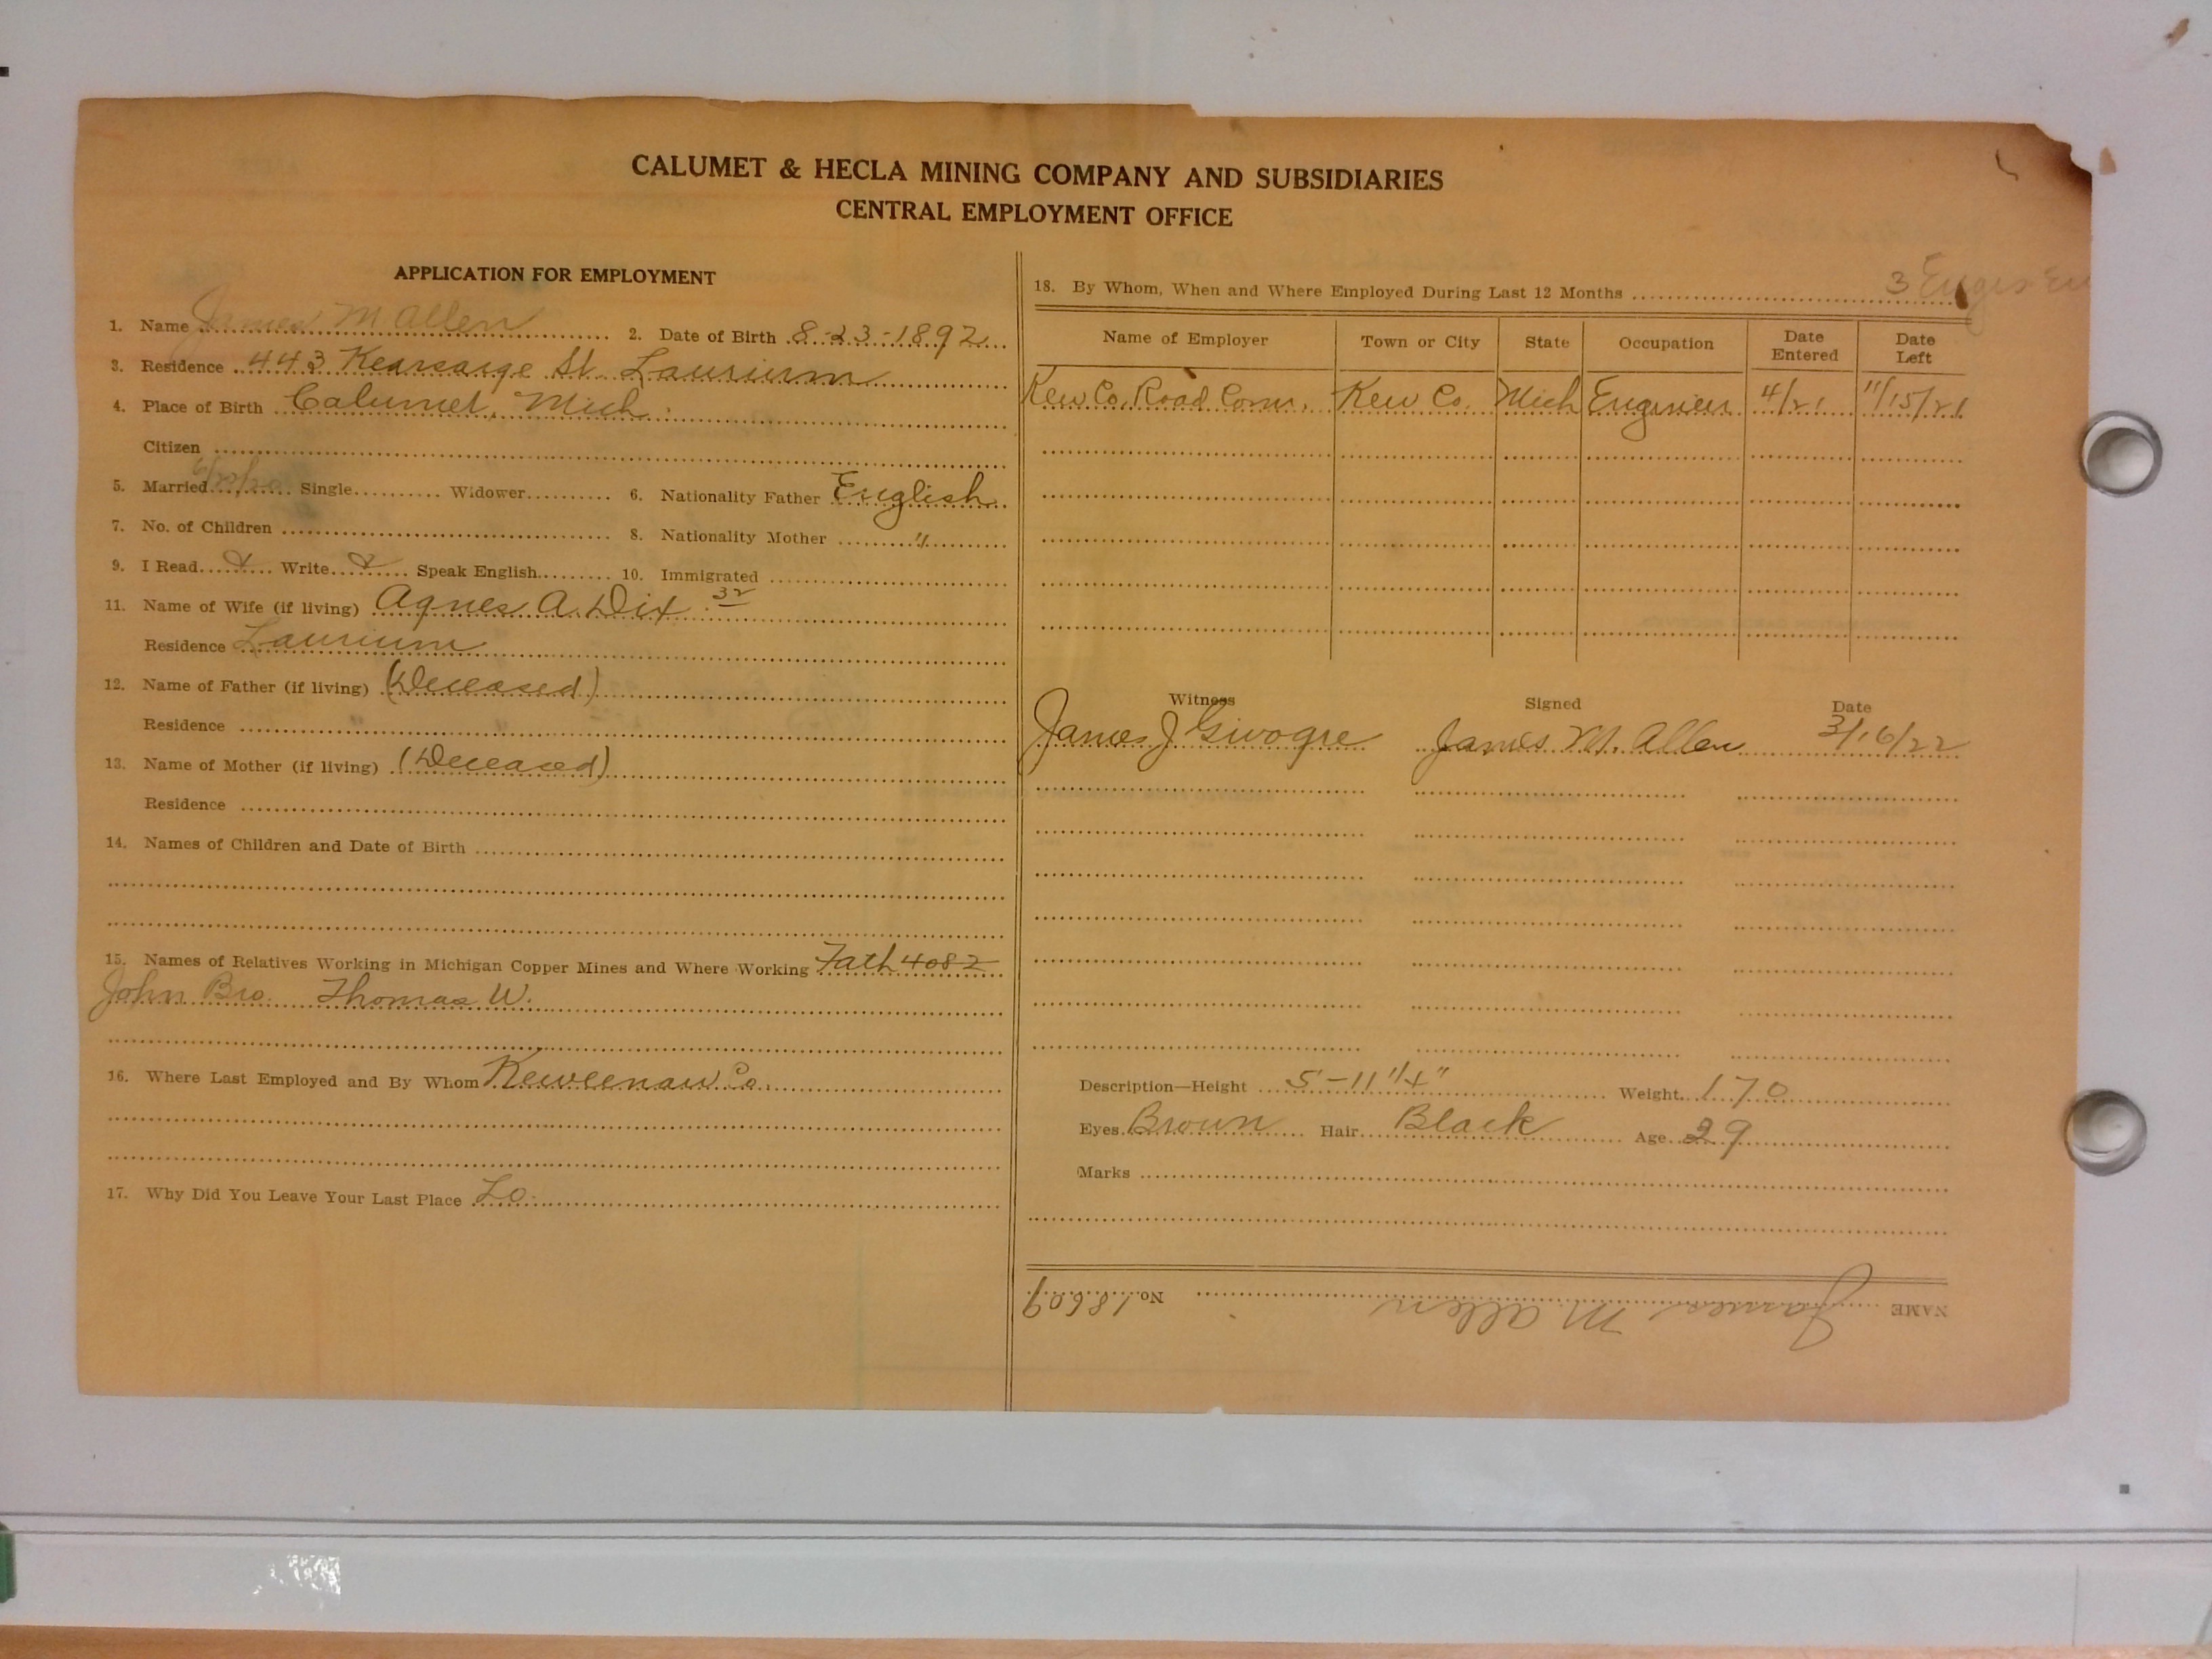 CALUMET & HECLA MINING COMPANY AND SUBSIDIARIES
CENTRAL EMPLOYMENT OFFICE
APPLICATION FOR EMPLOYMENT
1. Name James M Allen 2. Date of Birth 8-23-1892
3. Residence 443 Kearsarge St. Laurium
4. Place of Birth Calumet, Mich.
Citizen
5. Married Single Widower 6. Nationality Father English
7. No. of Children 8. Nationality Mother "
9. I Read Write Speak English 10. Immigrated
11. Name of Wife (if living) Agnes A. Dix 32
Residence Laurium
12. Name of Father (if living) (Deceased)
Residence
13. Name of Mother (if living) (Deceased)
Residence
14. Names of Children and Date of Birth
15. Names of Relatives Working in Michigan Copper Mines and Where Working Fath 4082
John Bro. Thomas W.
16. Where Last Employed and By Whom Keweenaw Co.
17. Why Did You Leave Your Last Place Lo.
3 Engineer
18. By Whom, When and Where Employed During Last 12 Months
Name of Employer Town or City State Occupation Date Entered Date Left
Kew Co. Road Com. Kew Co. Mich Engineer 4/21 11/15/21
Witness Signed Date
James J Givogre James M. Allen 3/16/22
Description—Height 5'-11 1/4" Weight 170
Eyes Brown Hair Black Age 29
Marks
NAME James M Allen No. 18609